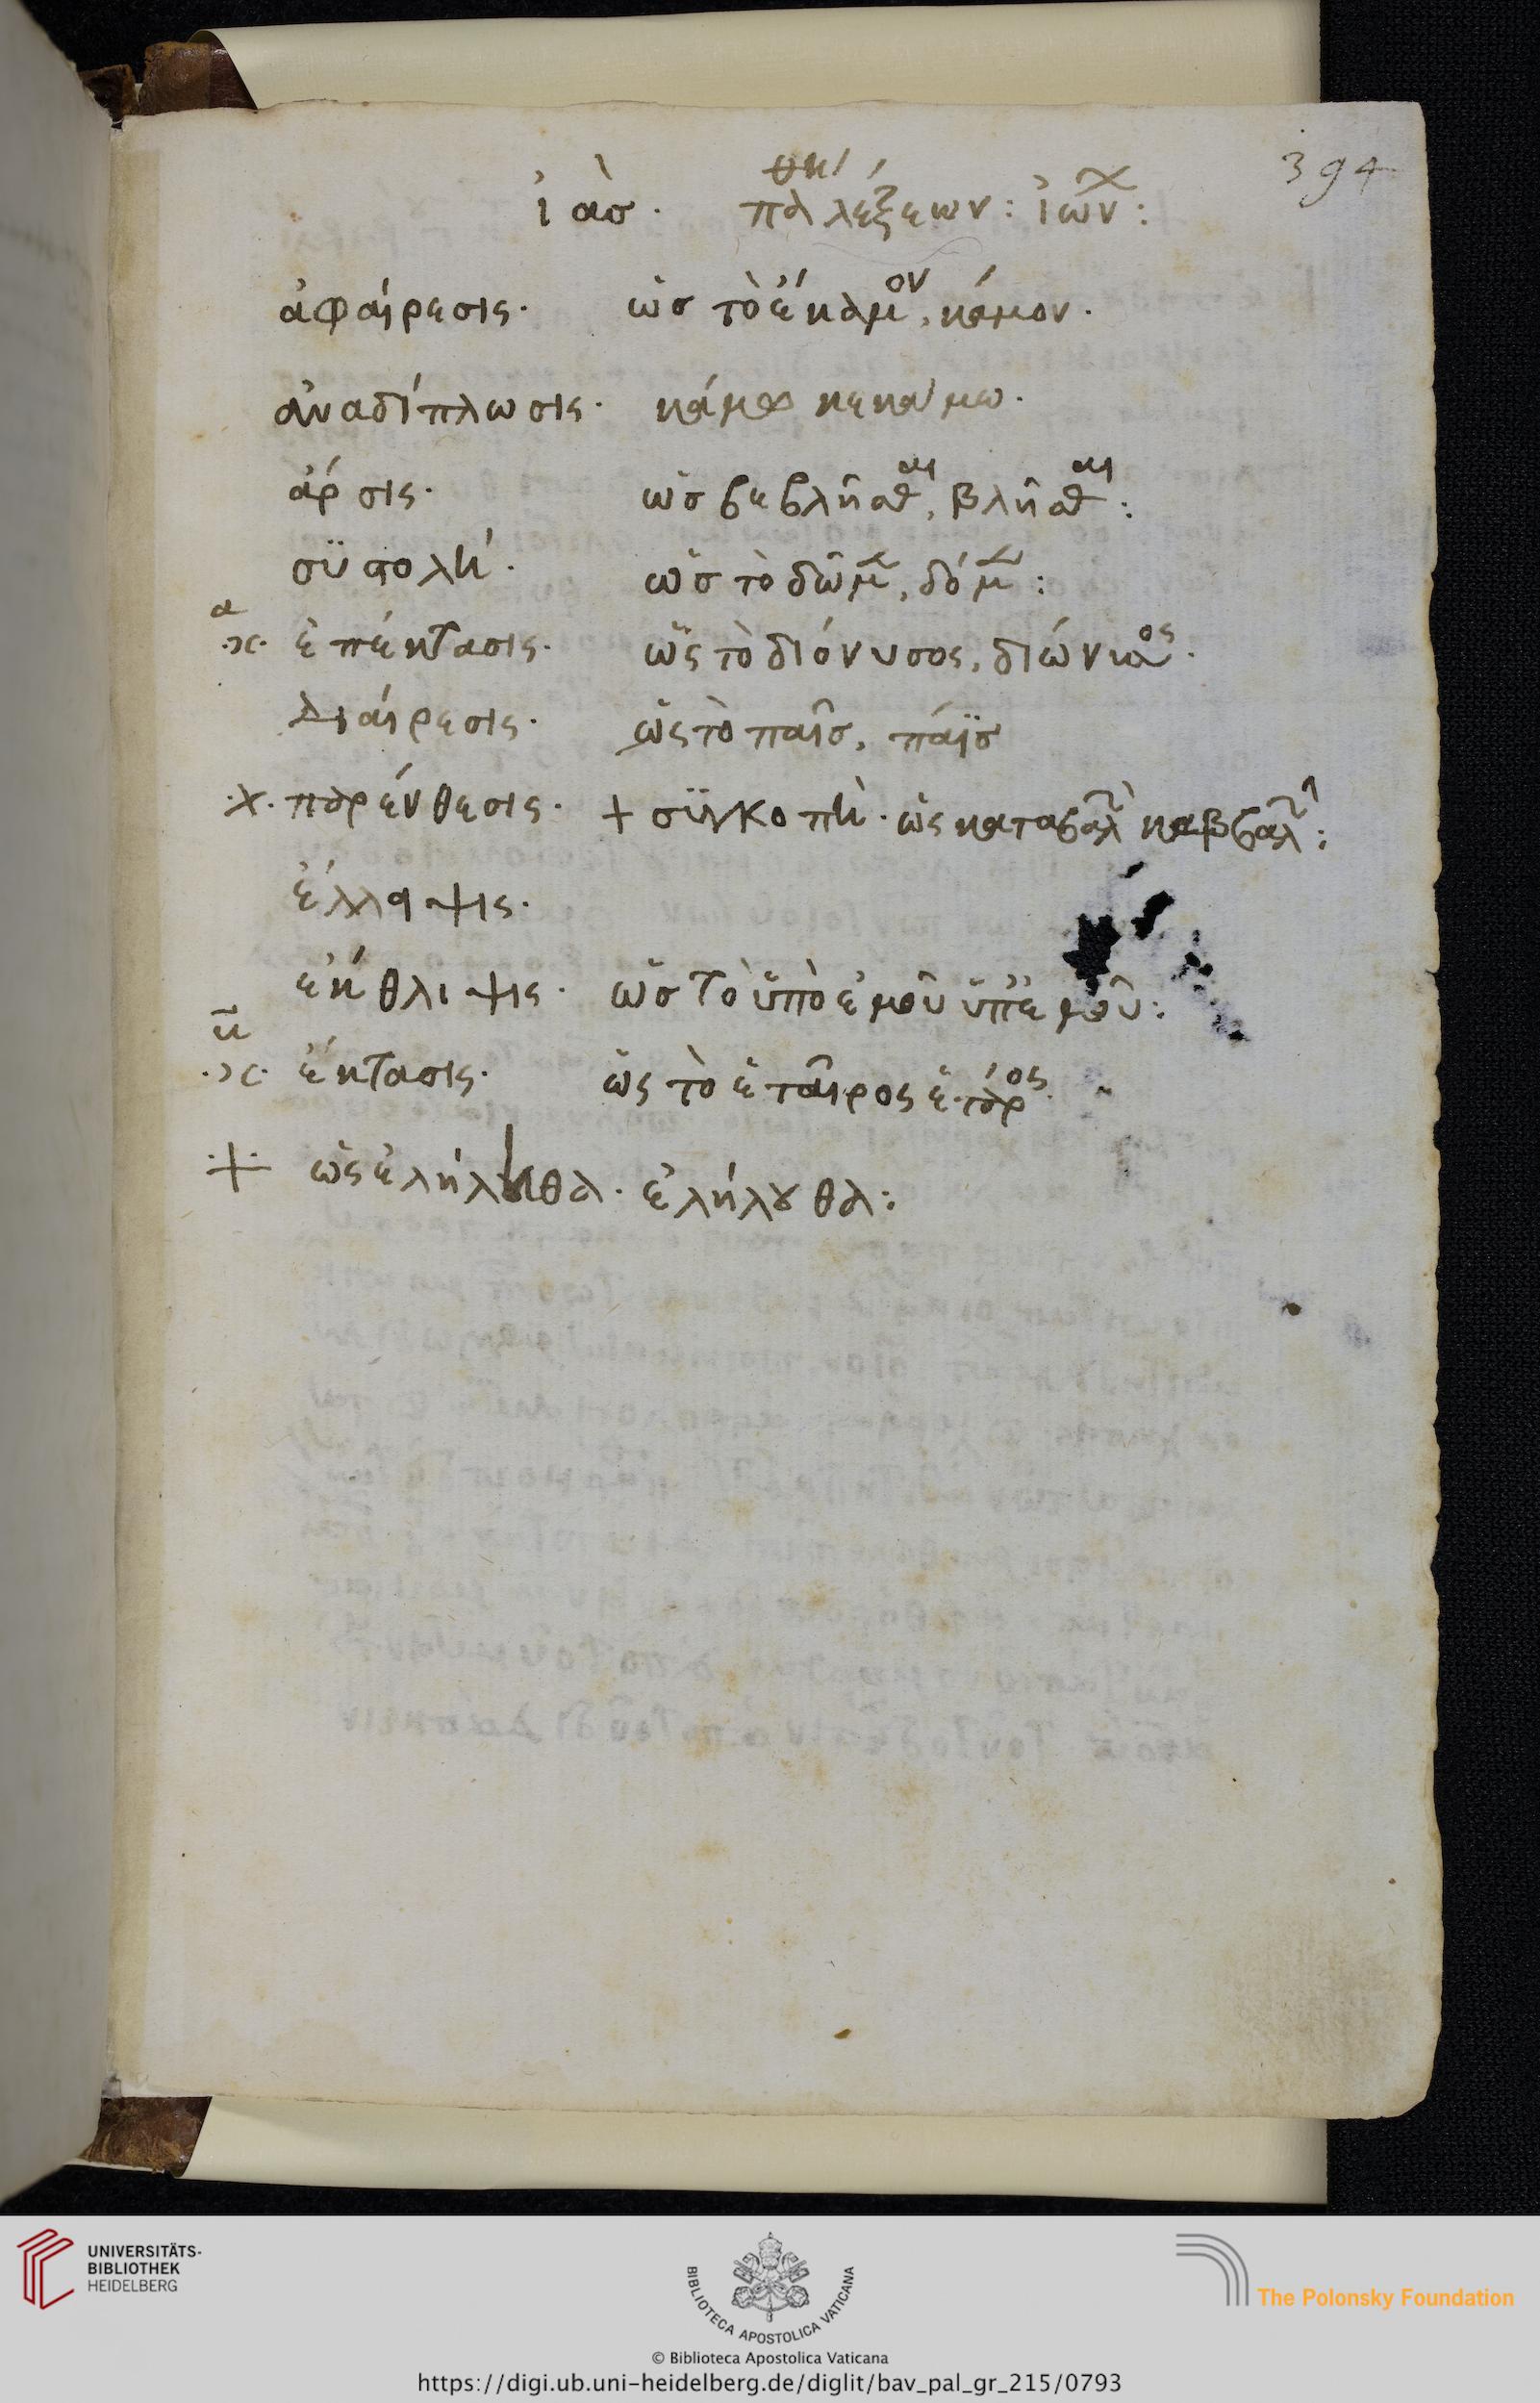 394
ἰὰσ. πάθη λέξεων: ἰωνικῶν:
ἀφαίρεσις. ὡσ τὸ ἔκαμον, κάμον.
ἀναδίπλωσις. κάμω κεκάμω.
ἄρσις. ὡσ βεβλῆσθαι, βλῆσθαι:
συστολή. ὡσ τὸ δῶμα, δόμα:
α
·χ· ἐπέκτασις. ὡς τὸ διόνυσος, διώνυσος.
διαίρεσις. ὡς τὸ παῖσ, πάϊσ
·χ· παρένθεσις. + συγκοπὴ. ὡς καταβαλ καββαλ:
ἔλλαψις.
ἔκθλιψις. ὡσ τὸ ὑπὸ ἐμοῦ ὑπ' ἐμοῦ:
·χ· ἔκτασις. ὡς τὸ ἑταῖρος ἕταρος
+ ὡς ἐλήλυθα. ἐλήλουθα:
UNIVERSITÄTS-
BIBLIOTHEK
HEIDELBERG
BIBLIOTECA APOSTOLICA VATICANA
The Polonsky Foundation
© Biblioteca Apostolica Vaticana
https://digi.ub.uni-heidelberg.de/diglit/bav_pal_gr_215/0793